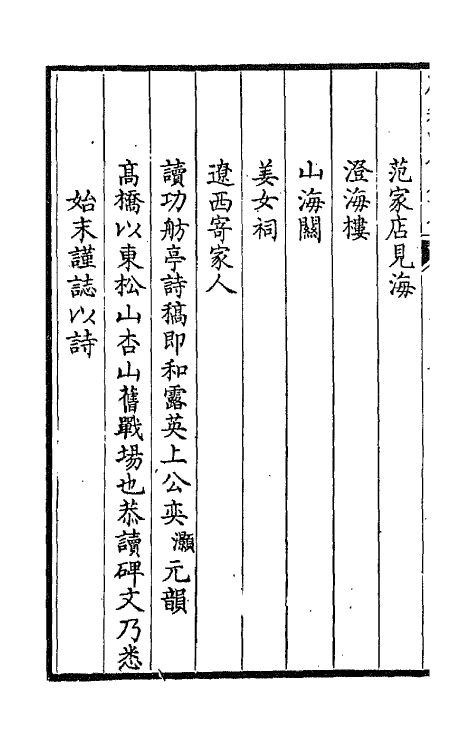 范家店見海
澄海樓
山海關
姜女祠
遼西寄家人
讀功舫亭詩稿即和露英上公奕灝元韻
高橋以東松山杏山舊戰場也恭讀碑文乃悉
始末謹誌以詩